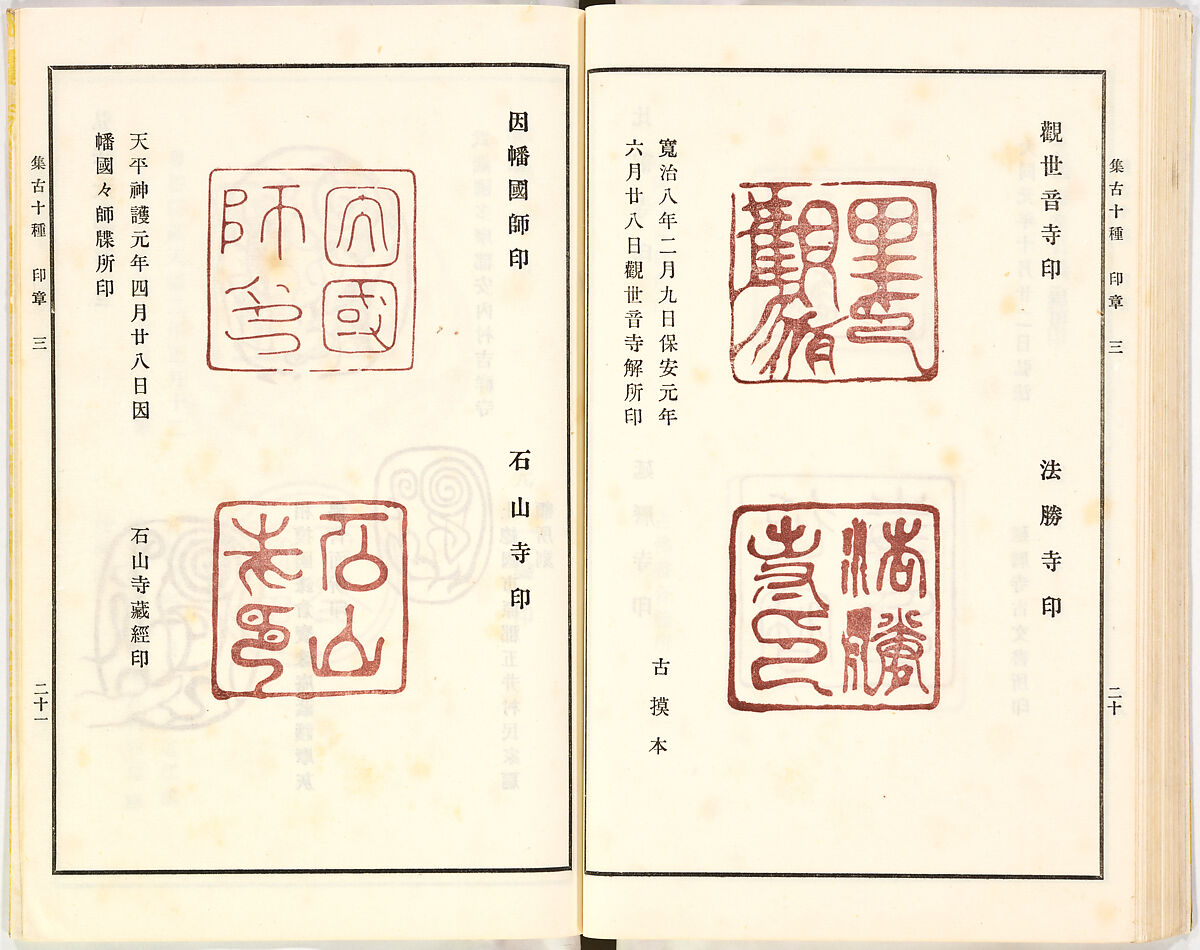 集古十種　印章　三
二十
觀世音寺印
寬治八年二月九日保安元年
六月廿八日觀世音寺解所印
法勝寺印
法勝
寺印
古摸本
因幡國師印
因國
師印
天平神護元年四月廿八日因
幡國々師牒所印
石山寺印
石山
寺印
石山寺藏經印
集古十種　印章　三
二十一